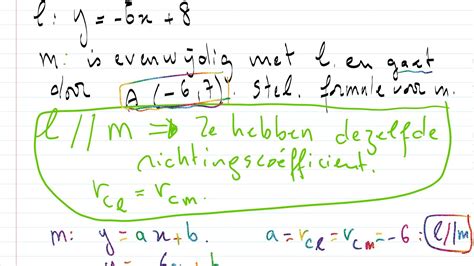 l: y = -6x + 8
m: is evenwijdig met l. en gaat
door A (-6,7). stel. formule voor m.
l // m => Ze hebben dezelfde
richtingscoëfficient.
rcl = rcm.
m: y = ax + b. a = rcl = rcm = -6 : l//m